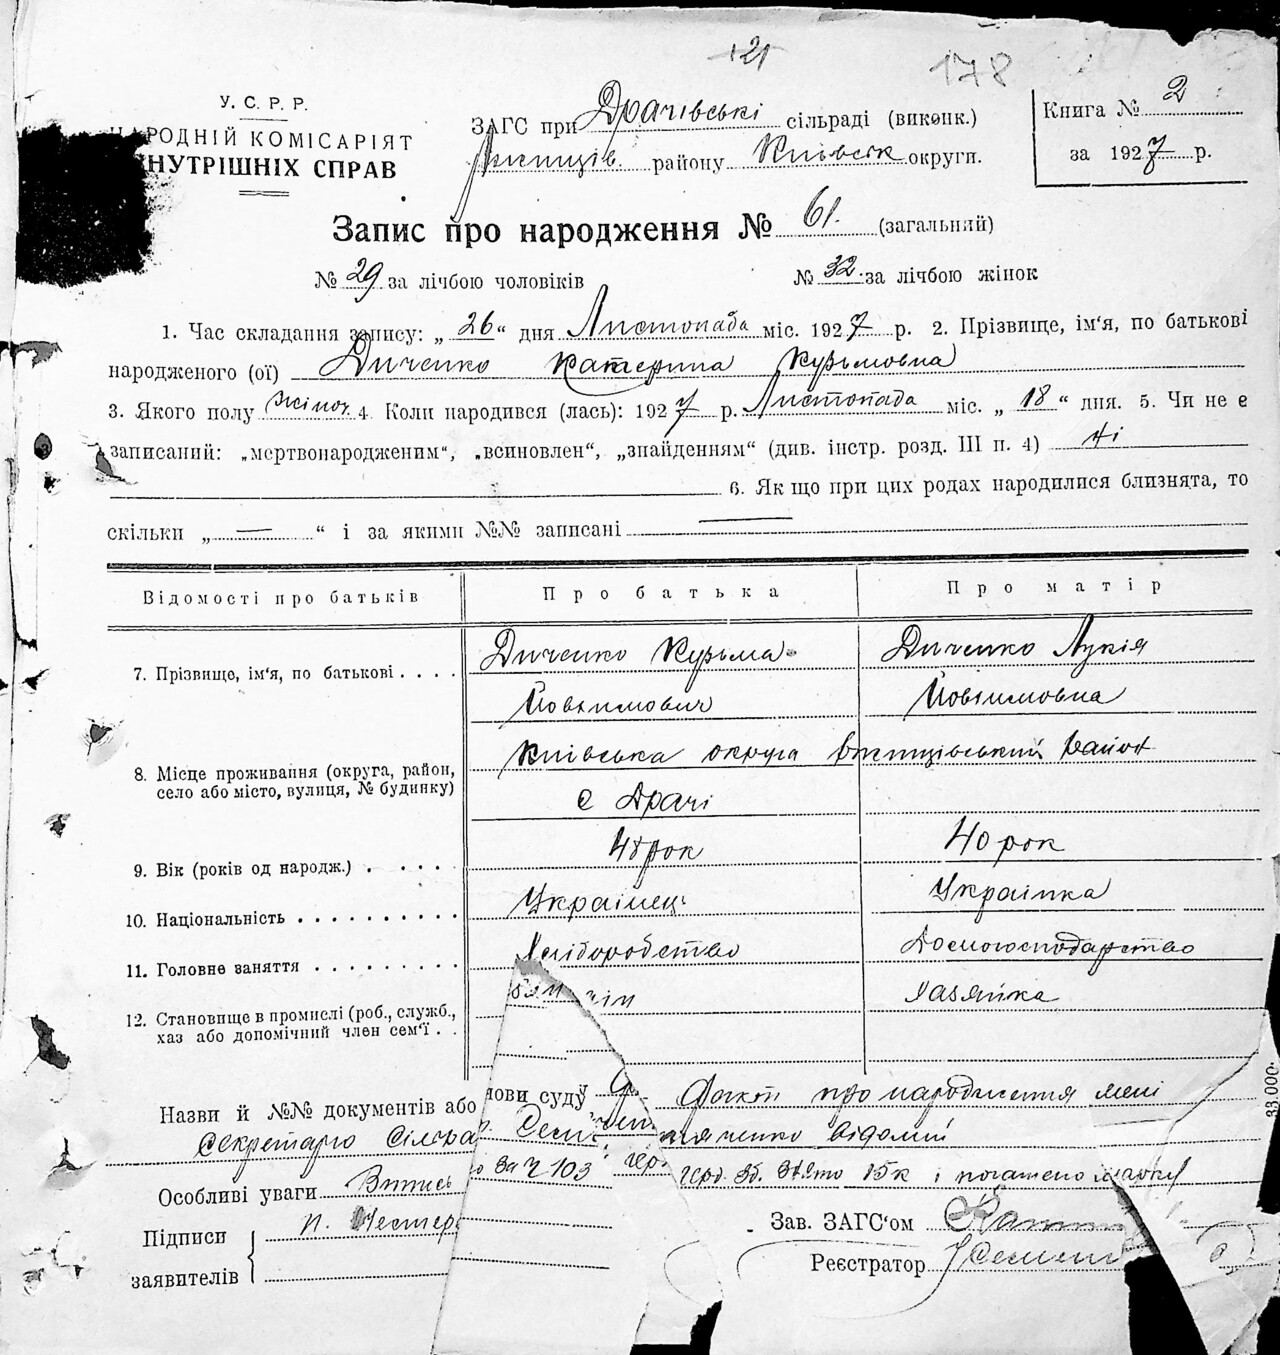 121 178
У. С. Р. Р.
НАРОДНІЙ КОМІСАРІЯТ
ВНУТРІШНІХ СПРАВ
ЗАГС при Драчівські сільраді (виконк.)
району Київськ округи.
Книга № 2
за 1927 р.
Запис про народження № 61. (загальний)
№ 29 за лічбою чоловіків № 32 за лічбою жінок
1. Час складання запису: „ 26 “ дня Листопада міс. 1927 р. 2. Прізвище, ім'я, по батькові
народженого (ої) Диченко Катерина Кузьмовна
3. Якого полу жіноч. 4. Коли народився (лась): 1927 р. Листопада міс. „ 18 “ дня. 5. Чи не є
записаний: „мертвонародженим“, „всиновлен“, „знайденням“ (див. інстр. розд. III п. 4) ні
6. Як що при цих родах народилися близнята, то
скільки „ — “ і за якими №№ записані —
Відомості про батьків Про батька Про матір
7. Прізвище, ім'я, по батькові . . . . Диченко Кузьма Диченко Лукія
Йовхимович Йовхимовна
8. Місце проживання (округа, район, Київська округа район
село або місто, вулиця, № будинку) с Драчі
9. Вік (років од народж.) . . . . 48 рок 40 рок
10. Національність . . . . . . . . . . Українец Українка
11. Головне заняття . . . . . . . . . Хліборобство Домогосподарство
12. Становище в промислі (роб., служб., Хазяйка
хаз або допомічний член сем'ї . .
Назви й №№ документів або нови суду Факт про народження мені
Секретарю Сільра відомий
Особливі уваги Випись за Ч 103 гер. зб. взято 15к і погашено марку
Підписи заявителів п. Нестер
Зав. ЗАГС‘ом
Реєстратор Семен
33.000.